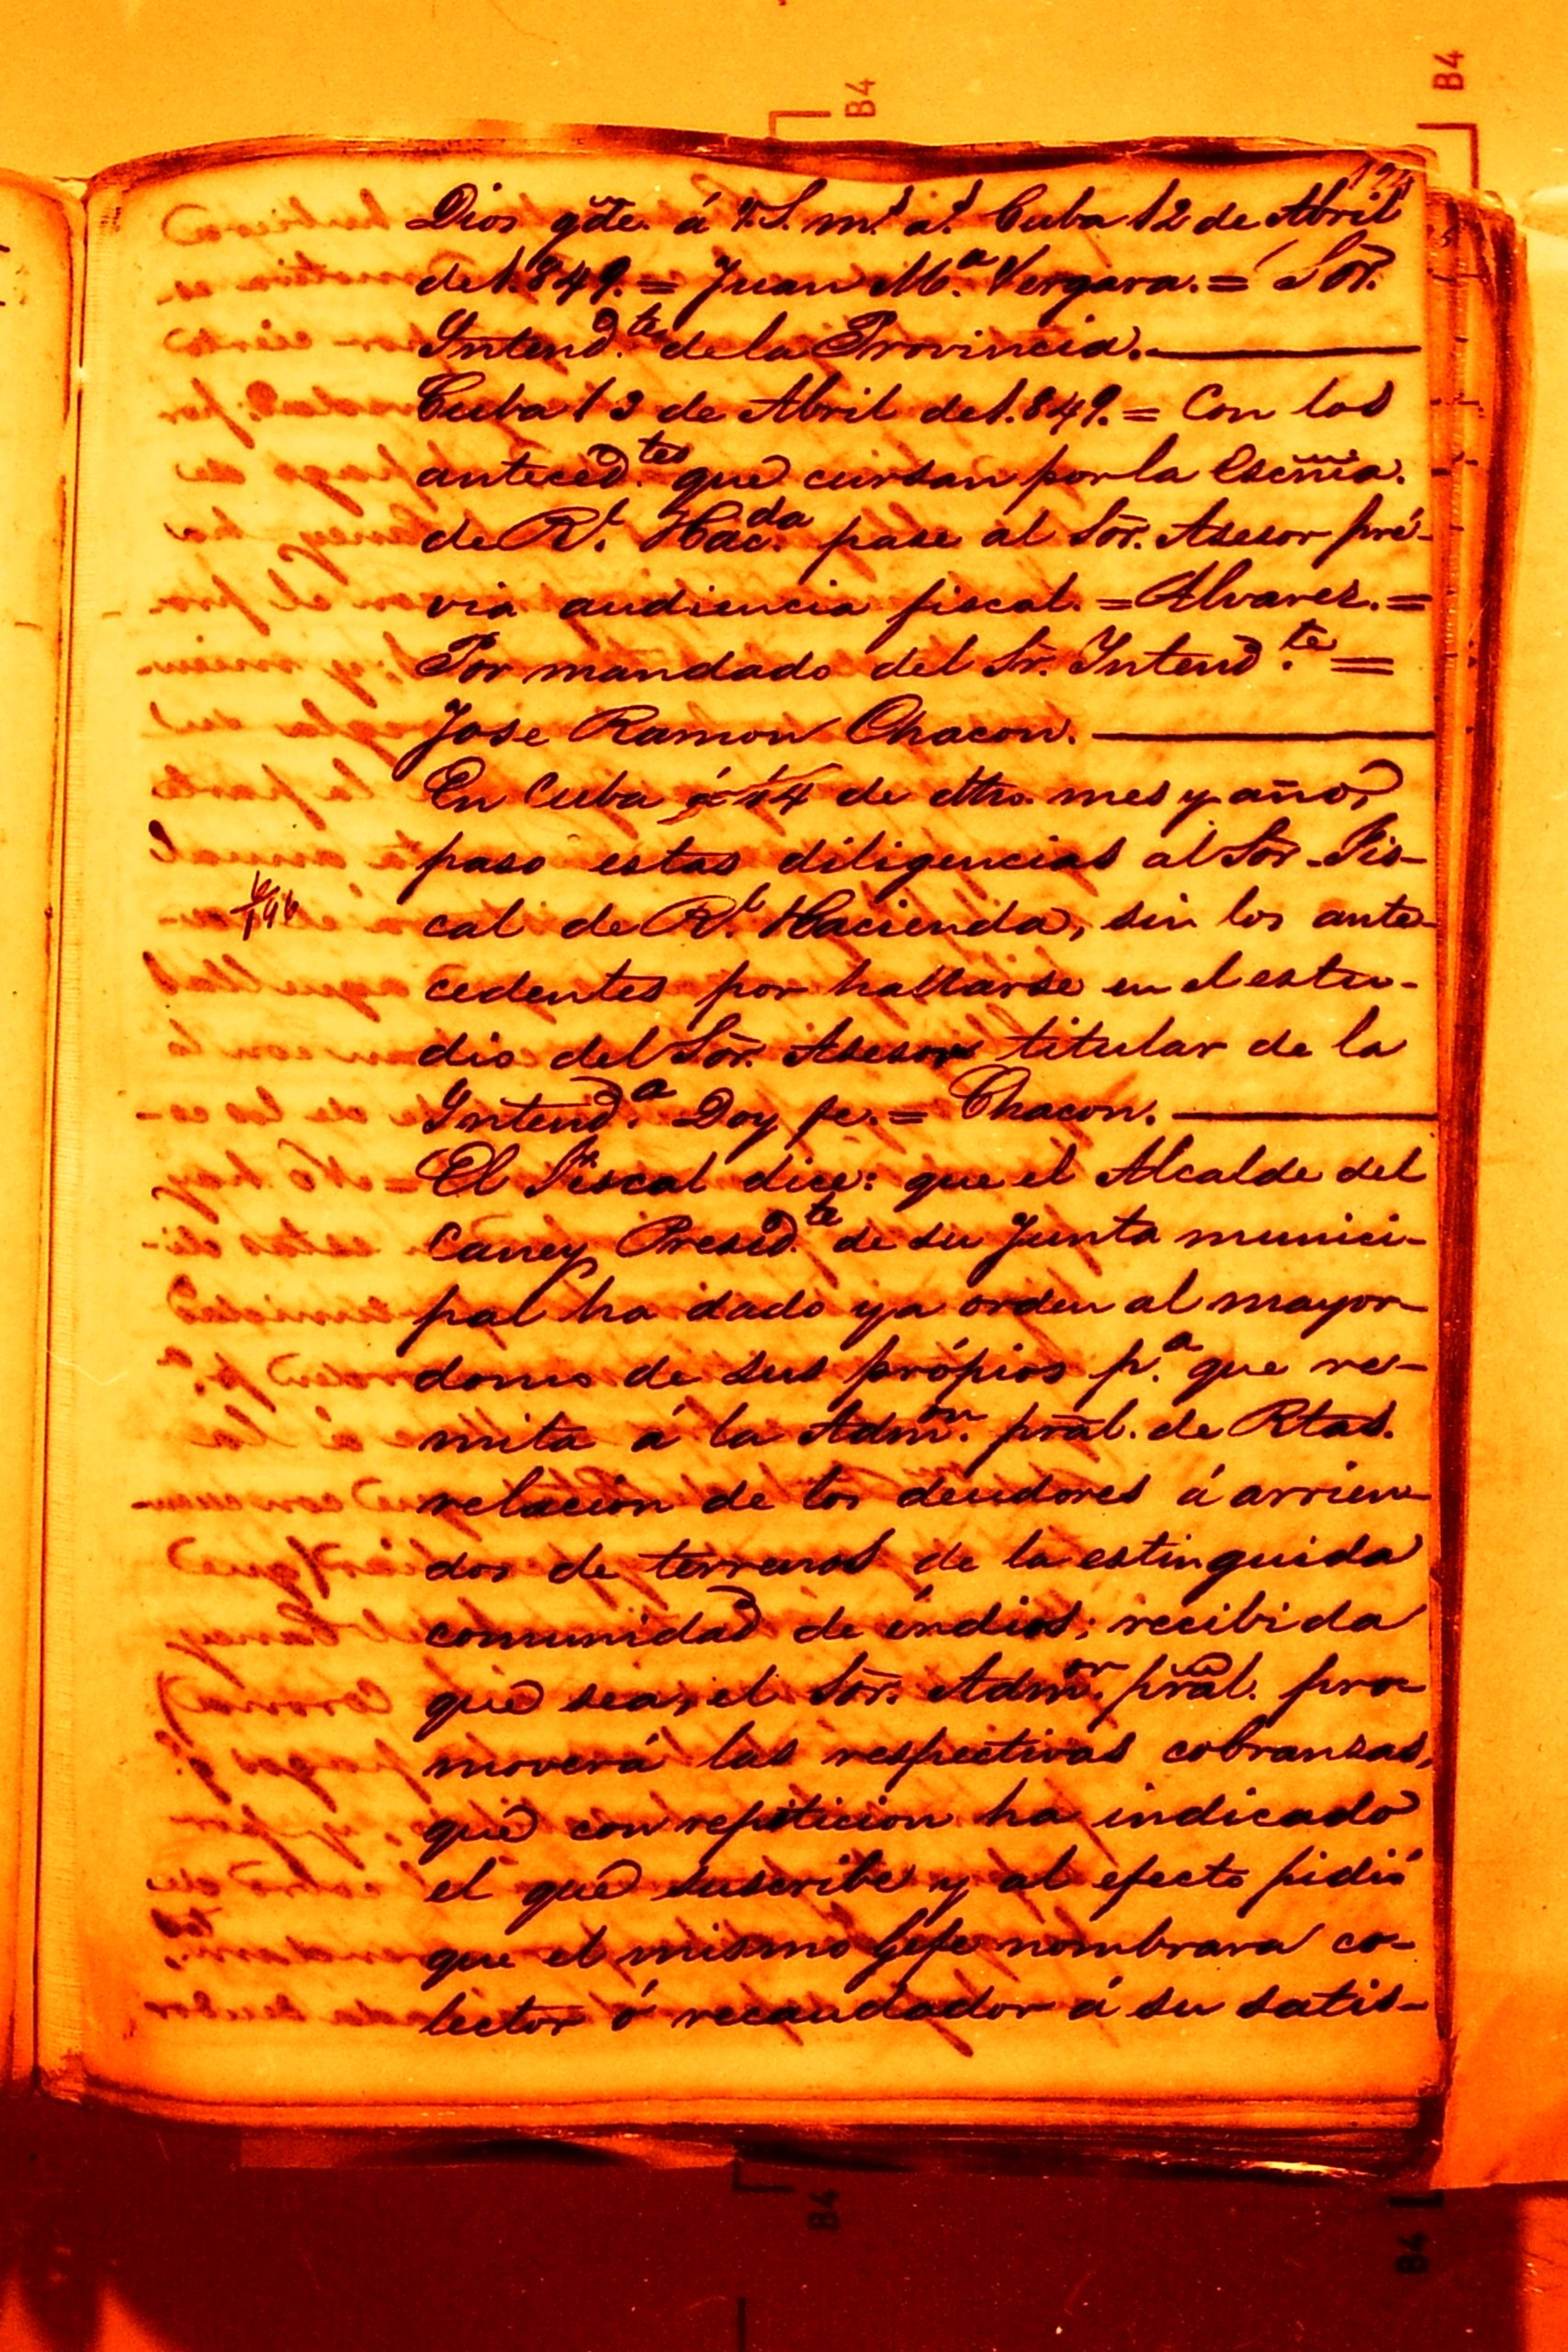 B4
B4
Dios gde. á V.S. ms. as. Cuba 12 de Abril
de 1.849. = Juan Ma. Vergara. = Sor.
Intendte. de la Provincia.
Cuba 13 de Abril de 1.849. = Con los
antecedtes. que cursan por la Escnía.
de Rl. Hacda. pase al Sor. Asesor pré-
via audiencia fiscal. = Alvarez. =
Por mandado del Sr. Intendte. =
Jose Ramon Chacon.
En Cuba á 14 de dho. mes y año,
paso estas diligencias al Sor. Fis-
cal de Rl. Hacienda, sin los ante-
cedentes por hallarse en el estu-
dio del Sor. Asesor titular de la
Intenda. Doy fe. = Chacon.
El Fiscal dice: que el Alcalde del
Caney Presidte. de su Junta munici-
pal ha dado ya orden al mayor-
domo de sus própios pa. que re-
mita á la Admon. pral. de Rtas.
relacion de los deudores á arrien-
dos de terrenos de la estinguida
comunidad de indios; recibida
que sea, el Sor. Admor. pral. pro-
moverá las respectivas cobranzas,
que con repiticion ha indicado
el que suscribe y al efecto pidió
que el mismo Gefe nombrara co-
lector ó recaudador á su satis-
B4
B4